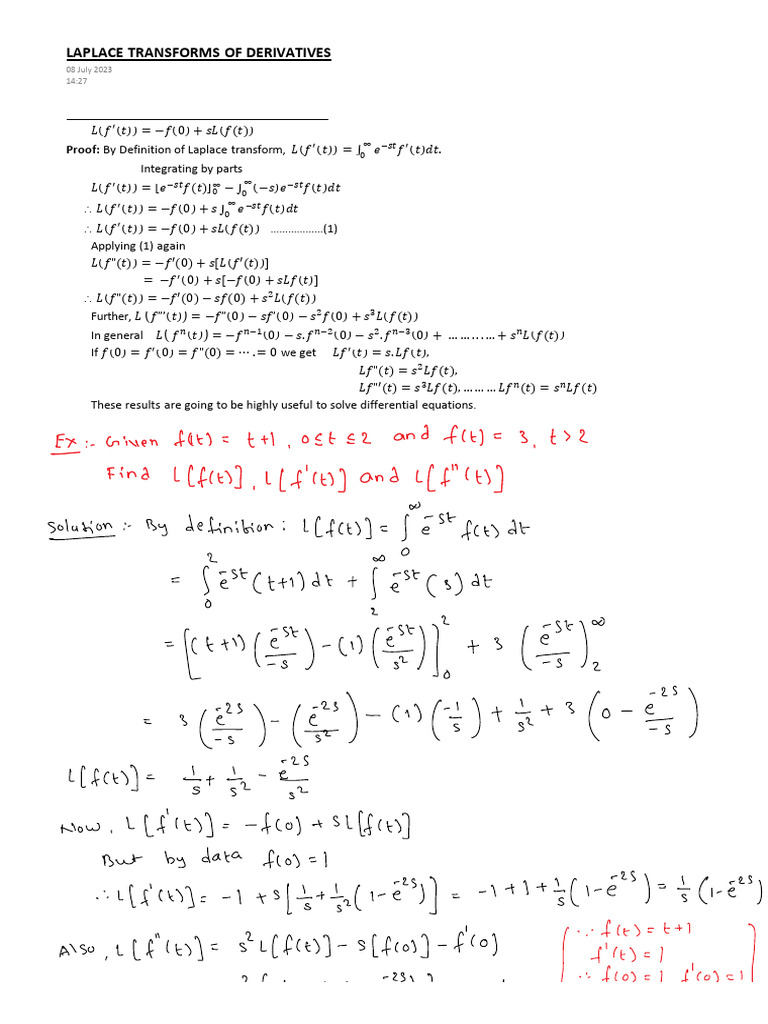 LAPLACE TRANSFORMS OF DERIVATIVES
08 July 2023
14:27
L(f′(t)) = −f(0) + sL(f(t))
Proof: By Definition of Laplace transform, L(f′(t)) = ∫₀^∞ e^{−st} f′(t)dt.
Integrating by parts
L(f′(t)) = [e^{−st}f(t)]₀^∞ − ∫₀^∞ (−s)e^{−st}f(t)dt
∴ L(f′(t)) = −f(0) + s ∫₀^∞ e^{−st}f(t)dt
∴ L(f′(t)) = −f(0) + sL(f(t)) ..................(1)
Applying (1) again
L(f"(t)) = −f′(0) + s[L(f′(t))]
= −f′(0) + s[−f(0) + sLf(t)]
∴ L(f"(t)) = −f′(0) − sf(0) + s²L(f(t))
Further, L (f"′(t)) = −f"(0) − sf′(0) − s²f(0) + s³L(f(t))
In general L( fⁿ(t)) = −fⁿ⁻¹(0) − s.fⁿ⁻²(0) − s².fⁿ⁻³(0) + ............ + sⁿL(f(t))
If f(0) = f′(0) = f"(0) = ⋯ . = 0 we get Lf′(t) = s.Lf(t),
Lf"(t) = s²Lf(t),
Lf"′(t) = s³Lf(t), ......... Lfⁿ(t) = sⁿLf(t)
These results are going to be highly useful to solve differential equations.
Ex :- Given f(t) = t+1, 0≤t≤2 and f(t) = 3, t>2
Find L[f(t)], L[f'(t)] and L[f"(t)]
Solution :- By definition : L[f(t)] = ∫₀^∞ e^{-st} f(t) dt
= ∫₀² e^{-st}(t+1) dt + ∫₂^∞ e^{-st}(3) dt
= [(t+1)(e^{-st}/-s) - (1)(e^{-st}/s²)]₀² + 3 (e^{-st}/-s)₂^∞
= 3 (e^{-2s}/-s) - (e^{-2s}/s²) - (1)(-1/s) + 1/s² + 3 (0 - e^{-2s}/-s)
L[f(t)] = 1/s + 1/s² - e^{-2s}/s²
Now, L[f'(t)] = -f(0) + sL[f(t)]
But by data f(0) = 1
∴ L[f'(t)] = -1 + s[1/s + 1/s²(1-e^{-2s})] = -1+1+1/s(1-e^{-2s}) = 1/s(1-e^{-2s})
Also, L[f"(t)] = s²L[f(t)] - s[f(0)] - f'(0)
∵ f(t) = t+1
f'(t) = 1
∴ f(0) = 1 f'(0) = 1